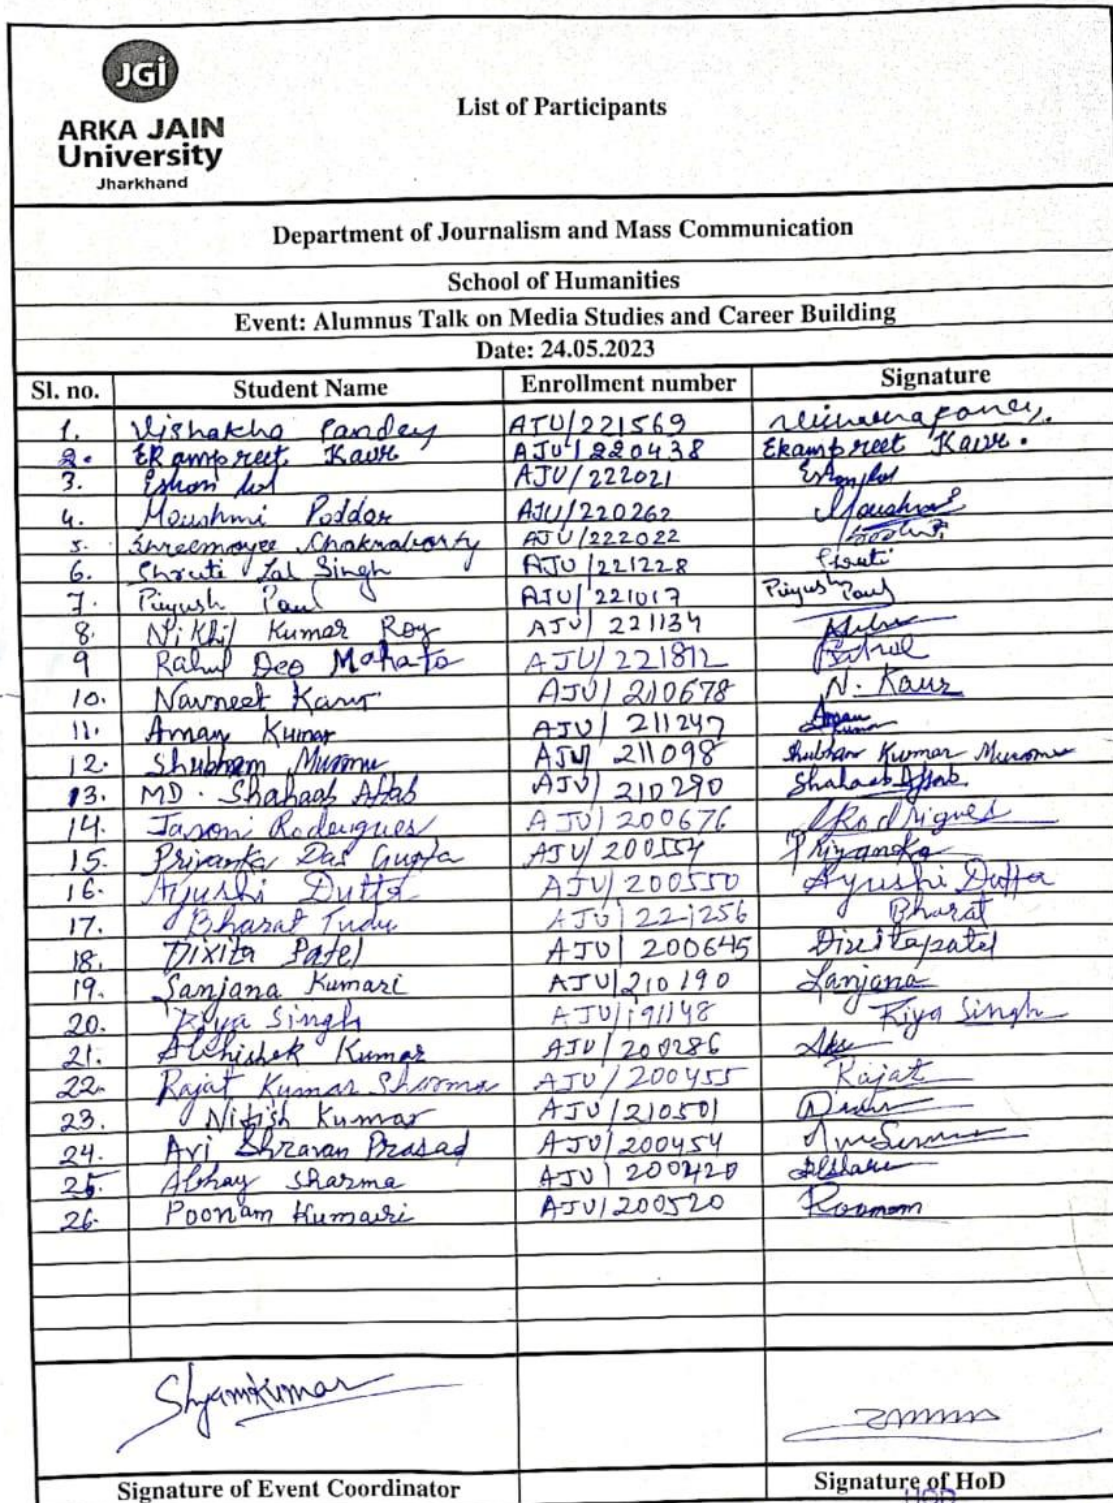 JGi
ARKA JAIN
University
Jharkhand
List of Participants
Department of Journalism and Mass Communication
School of Humanities
Event: Alumnus Talk on Media Studies and Career Building
Date: 24.05.2023
Sl. no. Student Name Enrollment number Signature
1. Vishakha Pandey AJU/221569
2. Ekampreet Kaur AJU/220438 Ekampreet Kaur.
3. Eshan AJU/222021
4. Moushmi Poddar AJU/220262 Moushmi
5. Shreemoyee Chakraborty AJU/222022
6. Shruti Lal Singh AJU/221228 Shruti
7. Piyush Paul AJU/221017 Piyush Paul
8. Nikhil Kumar Roy AJU/221134
9 Rahul Deo Mahato AJU/221812
10. Navneet Kaur AJU/210678 N. Kaur
11. Aman Kumar AJU/211247 Aman Kumar
12. Shubham Murmu AJU/211098 Shubham Kumar Murmu
13. MD. Shahaab Aftab AJU/210290 Shahaab Aftab
14. Jason Rodrigues AJU/200676 Rodrigues
15. Priyanka Das Gupta AJU/200554 Priyanka
16. Ayushi Dutta AJU/200550 Ayushi Dutta
17. Bharat Tudu AJU/221256 Bharat
18. Dixita Patel AJU/200645 Dixita patel
19. Sanjana Kumari AJU/210190 Sanjana
20. Riya Singh AJU/191148 Riya Singh
21. Abhishek Kumar AJU/200286
22. Rajat Kumar Sharma AJU/200455 Rajat
23. Nitish Kumar AJU/210501
24. Avi Shravan Prasad AJU/200454
25. Abhay Sharma AJU/200420
26. Poonam Kumari AJU/200520 Poonam
Shyamkumar
Signature of Event Coordinator Signature of HoD
HOD